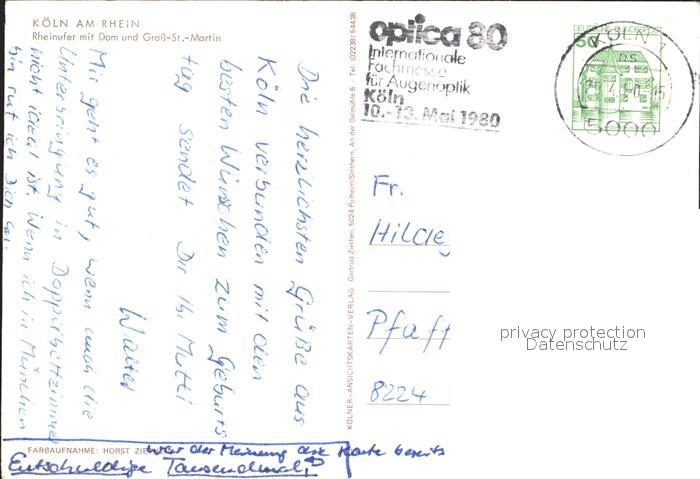 KÖLN AM RHEIN
Rheinufer mit Dom und Groß-St.-Martin
Die herzlichsten Grüße aus
Köln verbunden mit den
besten Wünschen zum Geburts
tag sendet Dir Ihr Mutti
Walter
Mir geht es gut, wenn auch die
Unterbringung in Doppelbettzimmer
nicht ideal ist. Wenn ich in München
bin ruf ich Dich an.
FARBAUFNAHME: HORST
war der Meinung die Karte bereits
Entschuldige Tausendmal,
KÖLNER-ANSICHTSKARTEN-VERLAG Gertrud Zenthen, 5024 Pulheim/Sinthern, An der Gelmühle 6 - Tel. (02238) 54438
optica 80
Internationale
Fachmesse
für Augenoptik
Köln
10.-13. Mai 1980
DEUTSCHE BUNDESPOST
50
KÖLN 1
ns
5000
Fr.
Hilde
Pfaff
8224
privacy protection
Datenschutz